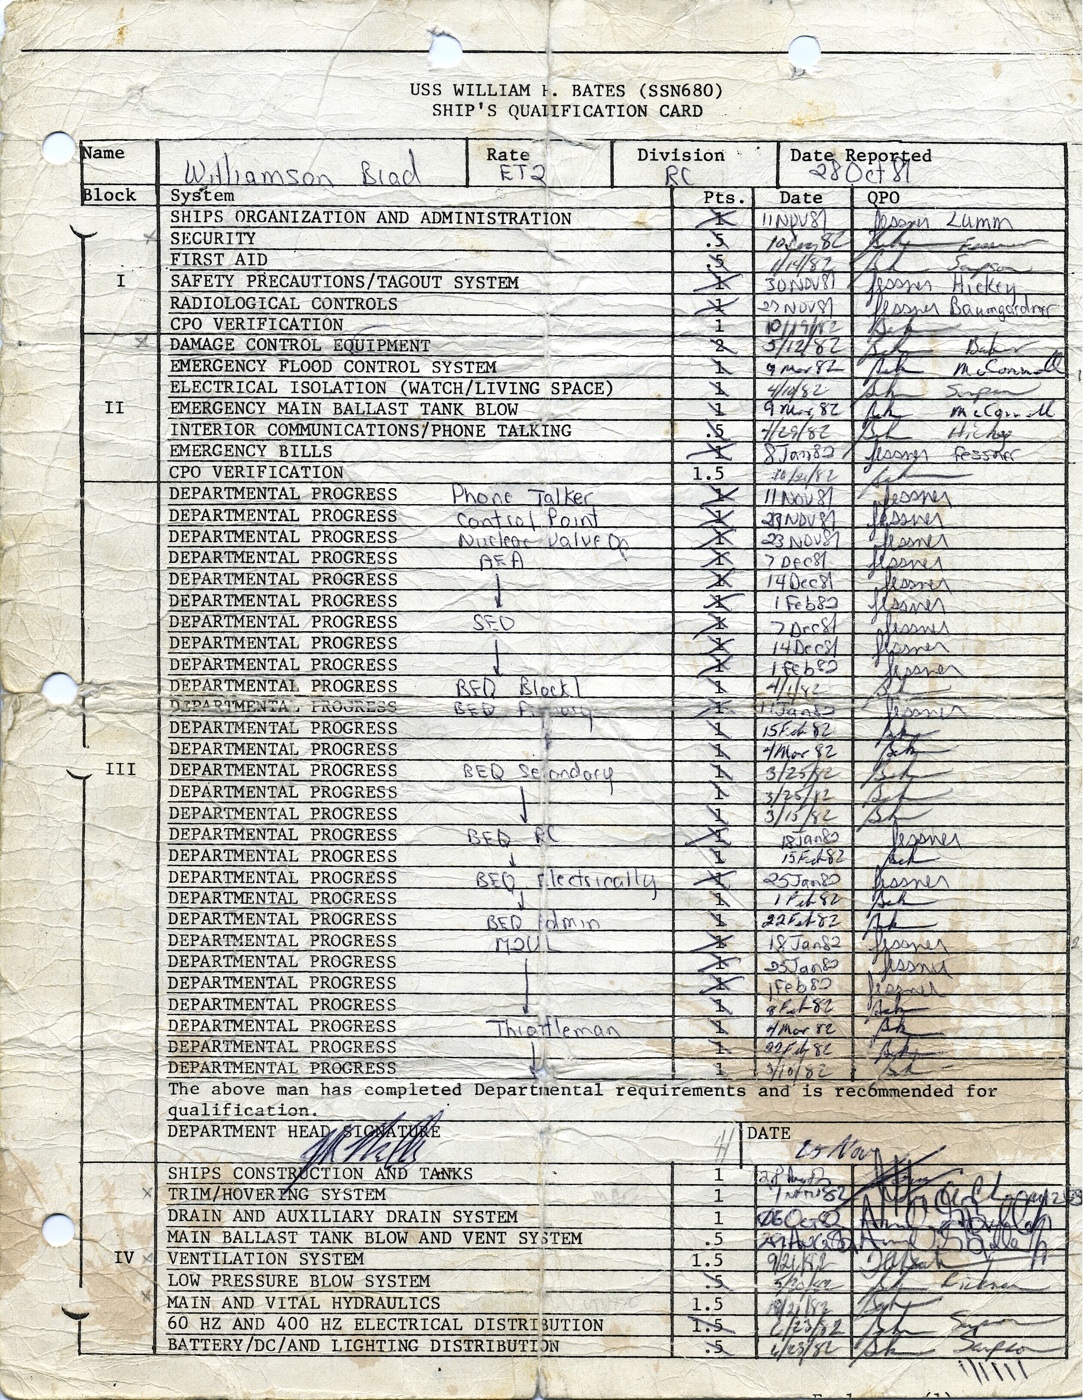 USS WILLIAM H. BATES (SSN680)
SHIP'S QUALIFICATION CARD
Name Williamson Brad Rate ET2 Division RC Date Reported 28 Oct 81
Block System Pts. Date QPO
SHIPS ORGANIZATION AND ADMINISTRATION 1 11 NOV 81 Jessner Lumm
SECURITY .5
FIRST AID .5 1/14/82
I SAFETY PRECAUTIONS/TAGOUT SYSTEM 1 30 NOV 81 Jessner Hickey
RADIOLOGICAL CONTROLS 1 23 NOV 81 Jessner Baumgardner
CPO VERIFICATION 1 10/19/82
DAMAGE CONTROL EQUIPMENT 2 5/12/82
EMERGENCY FLOOD CONTROL SYSTEM 1 9 Mar 82
ELECTRICAL ISOLATION (WATCH/LIVING SPACE) 1 4/10/82
II EMERGENCY MAIN BALLAST TANK BLOW 1 9 Mar, 82
INTERIOR COMMUNICATIONS/PHONE TALKING .5 Hickey
EMERGENCY BILLS 1 8 Jan 82 Jessner Jessner
CPO VERIFICATION 1.5
DEPARTMENTAL PROGRESS Phone Talker 1 11 Nov 81 Jessner
DEPARTMENTAL PROGRESS Control Point 1 23 NOV 81 Jessner
DEPARTMENTAL PROGRESS Nuclear Valve Op 1 23 NOV 81 Jessner
DEPARTMENTAL PROGRESS AEA 1 7 Dec 81 Jessner
DEPARTMENTAL PROGRESS 1 14 Dec 81 Jessner
DEPARTMENTAL PROGRESS 1 1 Feb 82 Jessner
DEPARTMENTAL PROGRESS SEO 1 7 Dec 81 Jessner
DEPARTMENTAL PROGRESS 1 14 Dec 81 Jessner
DEPARTMENTAL PROGRESS 1 1 Feb 82 Jessner
DEPARTMENTAL PROGRESS BEQ Block 1 1 4/1/82
DEPARTMENTAL PROGRESS BEQ Primary 1 11 Jan 82 Jessner
DEPARTMENTAL PROGRESS 1 15 Feb 82
DEPARTMENTAL PROGRESS 1 4 Mar 82
III DEPARTMENTAL PROGRESS BEQ Secondary 1 3/25/82
DEPARTMENTAL PROGRESS 1 3/25/82
DEPARTMENTAL PROGRESS 1 3/15/82
DEPARTMENTAL PROGRESS BEQ RC 1 18 Jan 82 Jessner
DEPARTMENTAL PROGRESS 1 15 Feb 82
DEPARTMENTAL PROGRESS BEQ Electrically 1 25 Jan 82 Jessner
DEPARTMENTAL PROGRESS 1 1 Feb 82
DEPARTMENTAL PROGRESS BEQ Admin 1 22 Feb 82
DEPARTMENTAL PROGRESS 1 18 Jan 82 Jessner
DEPARTMENTAL PROGRESS 1 25 Jan 82 Jessner
DEPARTMENTAL PROGRESS 1 1 Feb 82 Jessner
DEPARTMENTAL PROGRESS 1 8 Feb 82
DEPARTMENTAL PROGRESS Throttleman 1 4 Mar 82
DEPARTMENTAL PROGRESS 1 22 Feb 82
DEPARTMENTAL PROGRESS 1 3/10/82
The above man has completed Departmental requirements and is recommended for
qualification.
DEPARTMENT HEAD SIGNATURE DATE
SHIPS CONSTRUCTION AND TANKS 1
TRIM/HOVERING SYSTEM 1
DRAIN AND AUXILIARY DRAIN SYSTEM 1
MAIN BALLAST TANK BLOW AND VENT SYSTEM .5
IV VENTILATION SYSTEM 1.5 9/21/82
LOW PRESSURE BLOW SYSTEM .5
MAIN AND VITAL HYDRAULICS 1.5
60 HZ AND 400 HZ ELECTRICAL DISTRIBUTION 1.5
BATTERY/DC/AND LIGHTING DISTRIBUTION .5